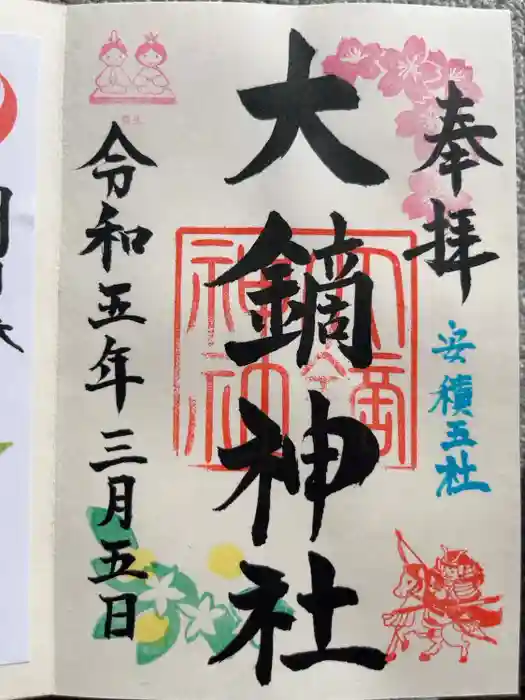 奉拝
安積五社
大鏑神社
令和五年三月五日